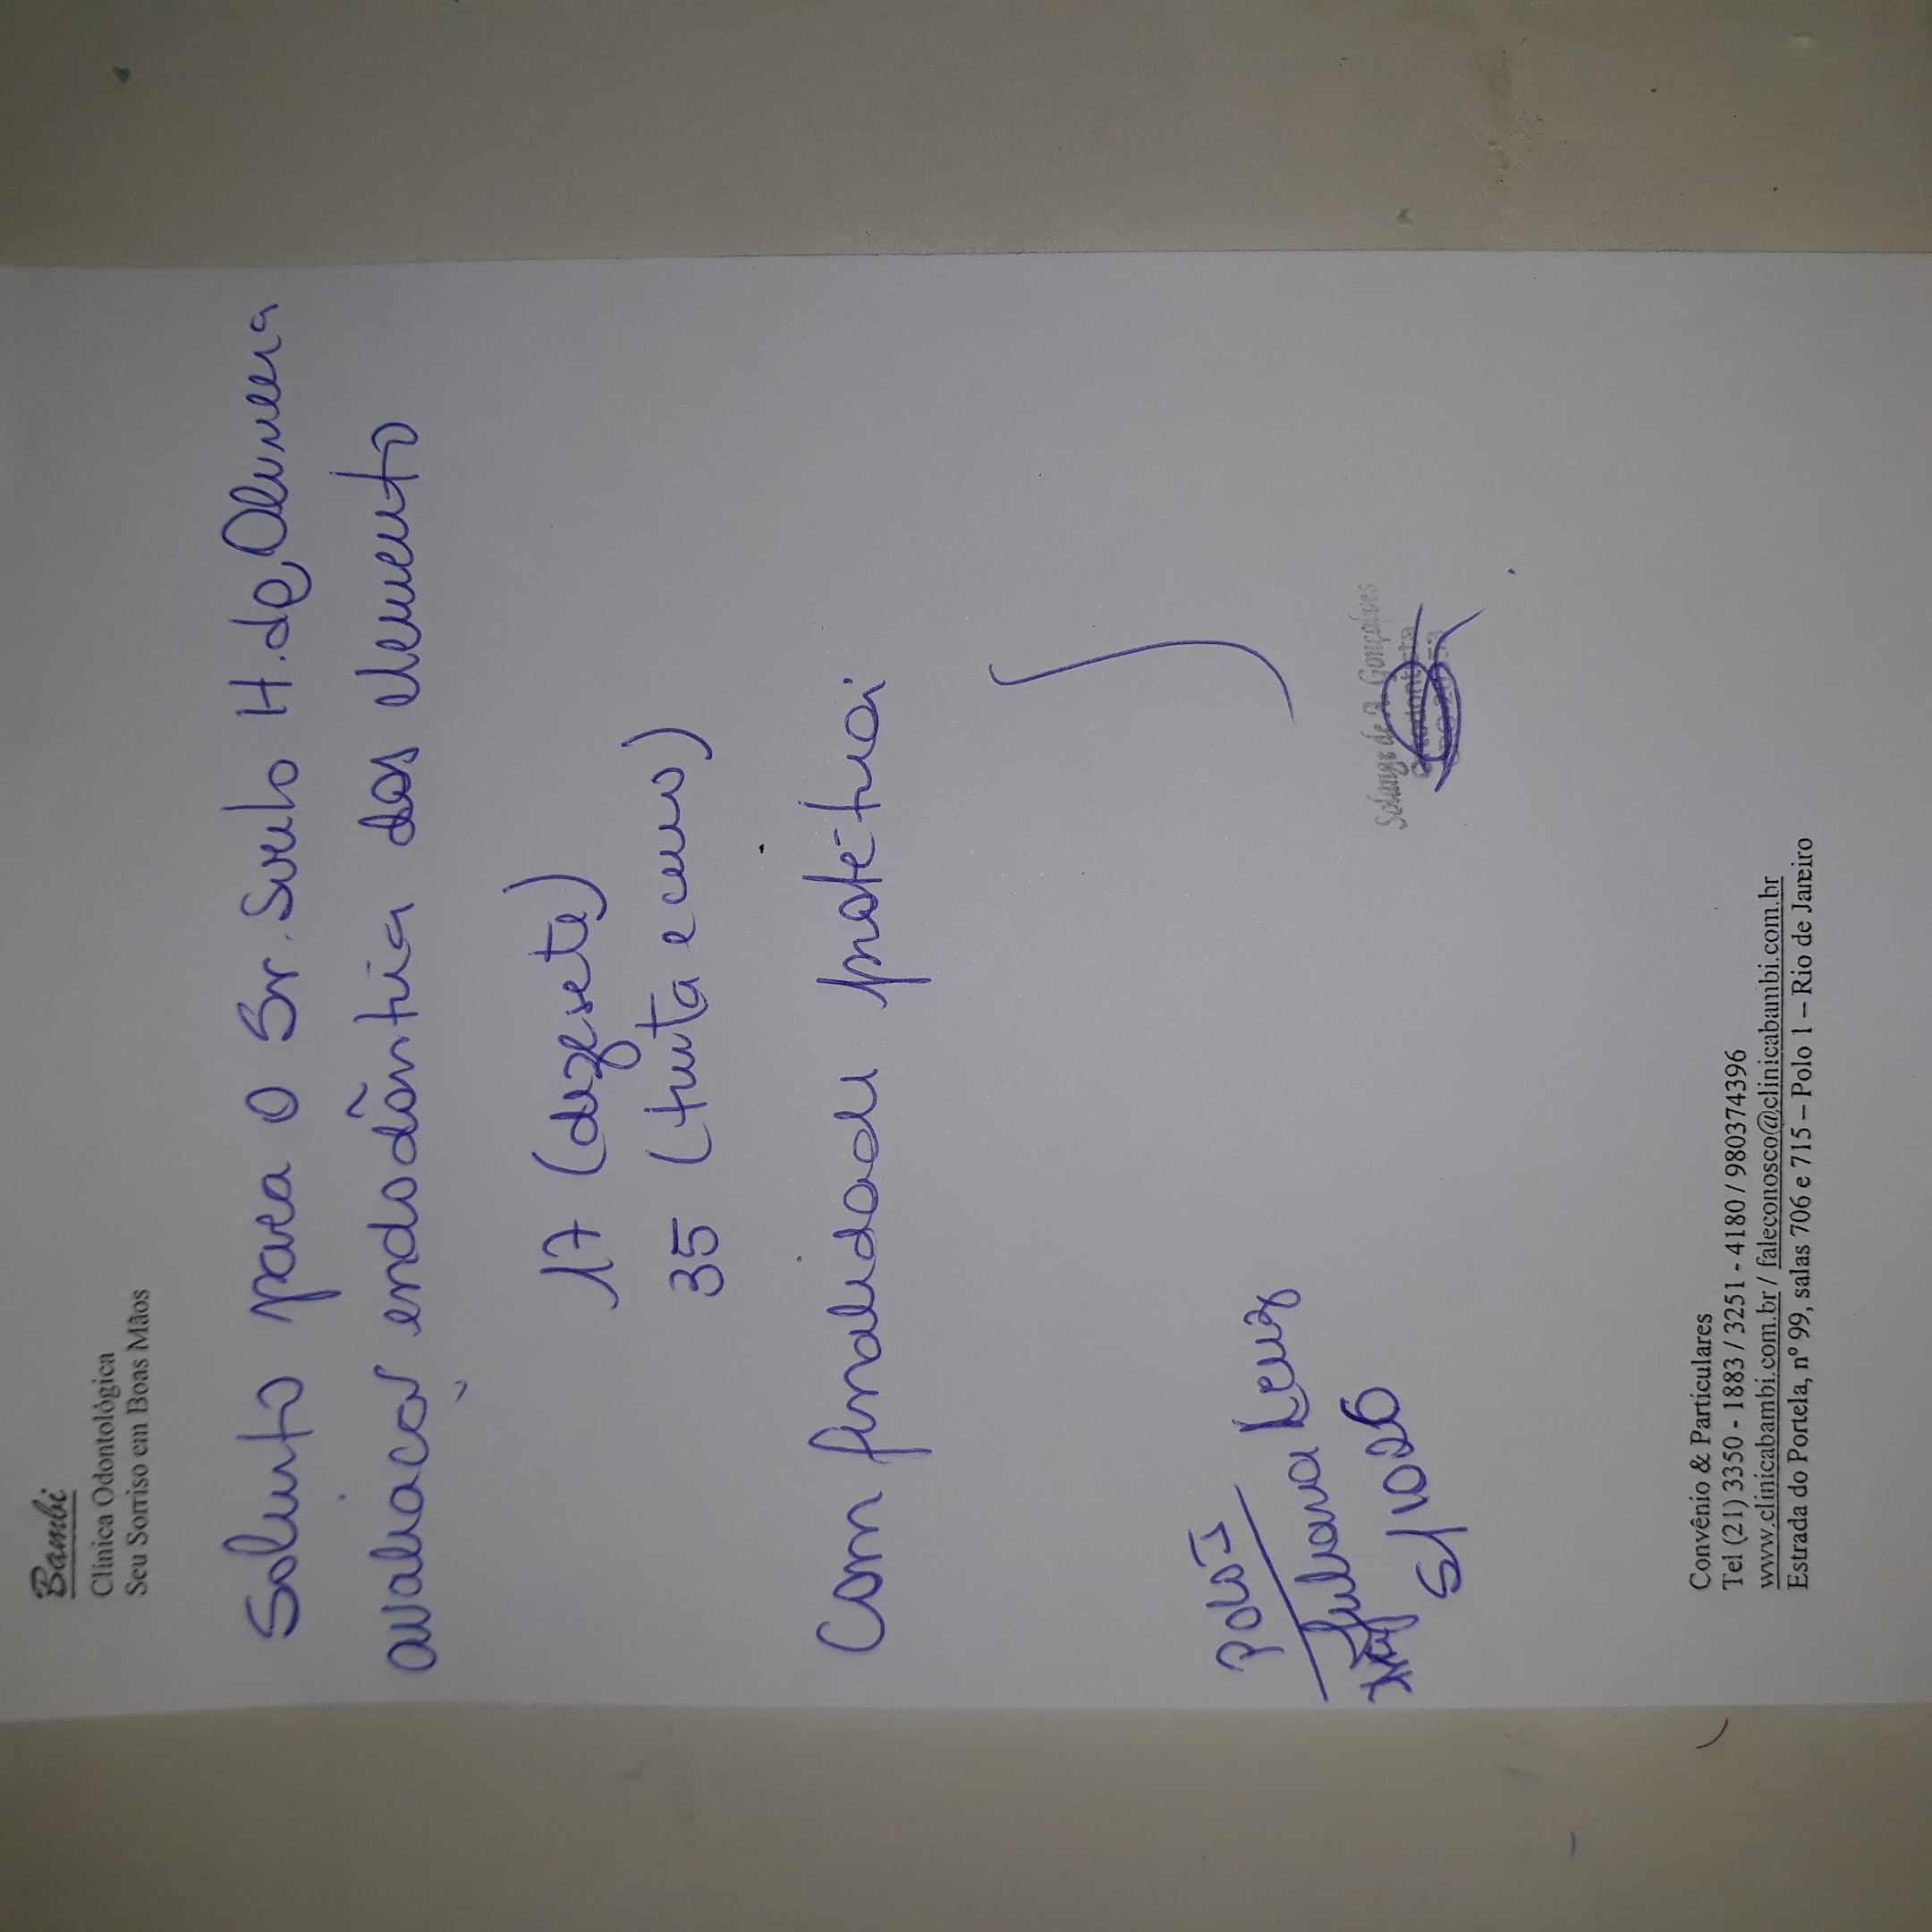 Bambi
Clínica Odontológica
Seu Sorriso em Boas Mãos
Solicito para o Sr. H. de Oliveira
avaliação endodôntica dos elemento
17 (dezesete)
35 (trinta e cinco)
Com finalidade protética.
POLO I
Juliana
Solange de A. Gonçalves
Convênio & Particulares
Tel (21) 3350 - 1883 / 3251 - 4180 / 980374396
www.clinicabambi.com.br / faleconosco@clinicabambi.com.br
Estrada do Portela, nº 99, salas 706 e 715 – Polo 1 – Rio de Janeiro